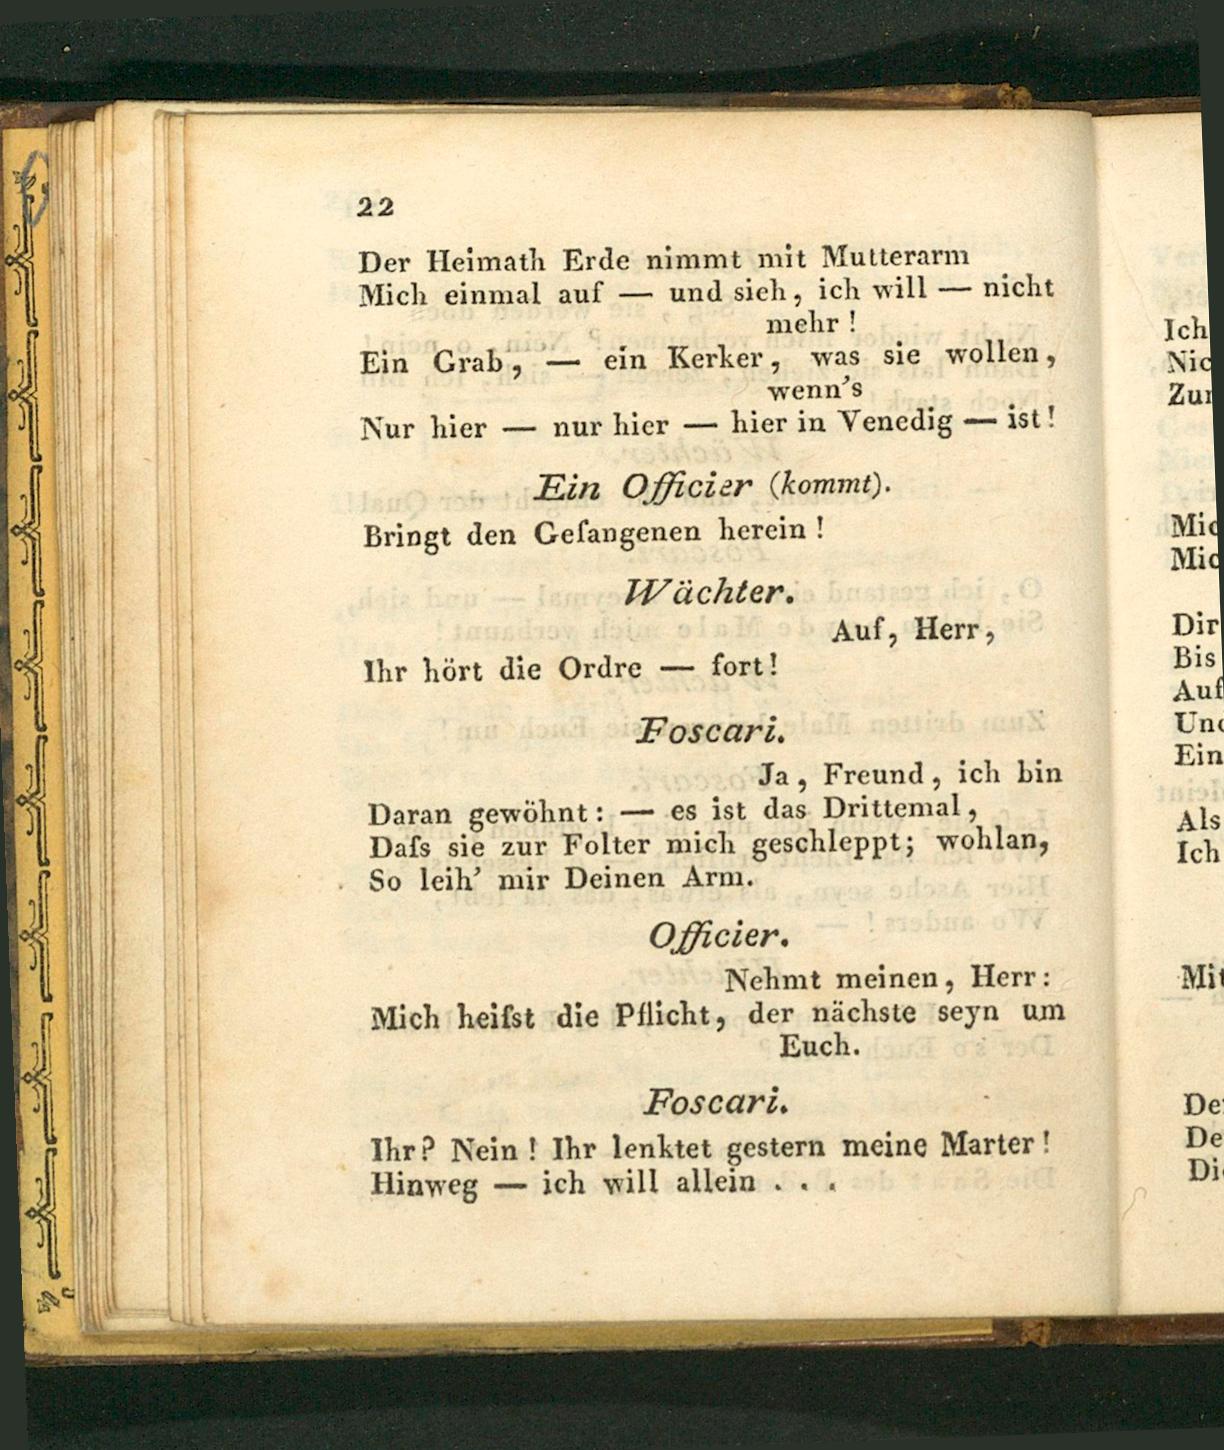 22
Der Heimath Erde nimmt mit Mutterarm
Mich einmal auf — und sieh, ich will — nicht
mehr!
Ein Grab, — ein Kerker, was sie wollen,
wenn's
Nur hier — nur hier — hier in Venedig — ist!
Ein Officier (kommt).
Bringt den Gefangenen herein!
Wächter.
Auf, Herr,
Ihr hört die Ordre — fort!
Foscari.
Ja, Freund, ich bin
Daran gewöhnt: — es ist das Drittemal,
Daſs sie zur Folter mich geschleppt; wohlan,
So leih' mir Deinen Arm.
Officier.
Nehmt meinen, Herr:
Mich heiſst die Pflicht, der nächste seyn um
Euch.
Foscari.
Ihr? Nein! Ihr lenktet gestern meine Marter!
Hinweg — ich will allein . . .
Ich
Mic
Mic
Dir
Bis
Auf
Und
Ein
Als
Ich
Mit